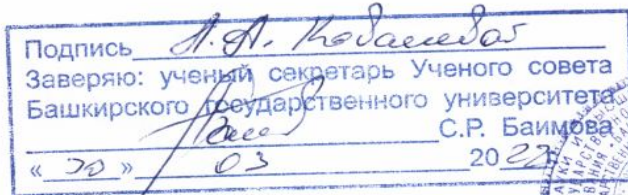 Подпись
Заверяю: ученый секретарь Ученого совета
Башкирского государственного университета
С.Р. Баимова
« 30 » 03 2022